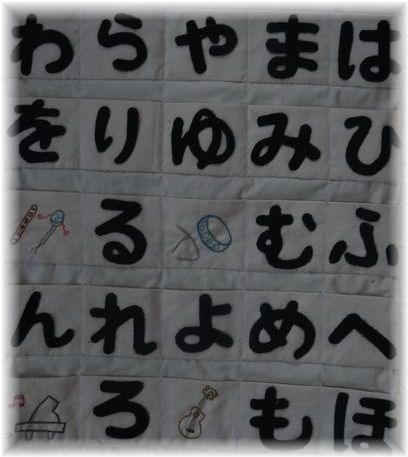 わ ら や ま は
を り ゆ み ひ
る む ふ
ん れ よ め へ
ろ も ほ